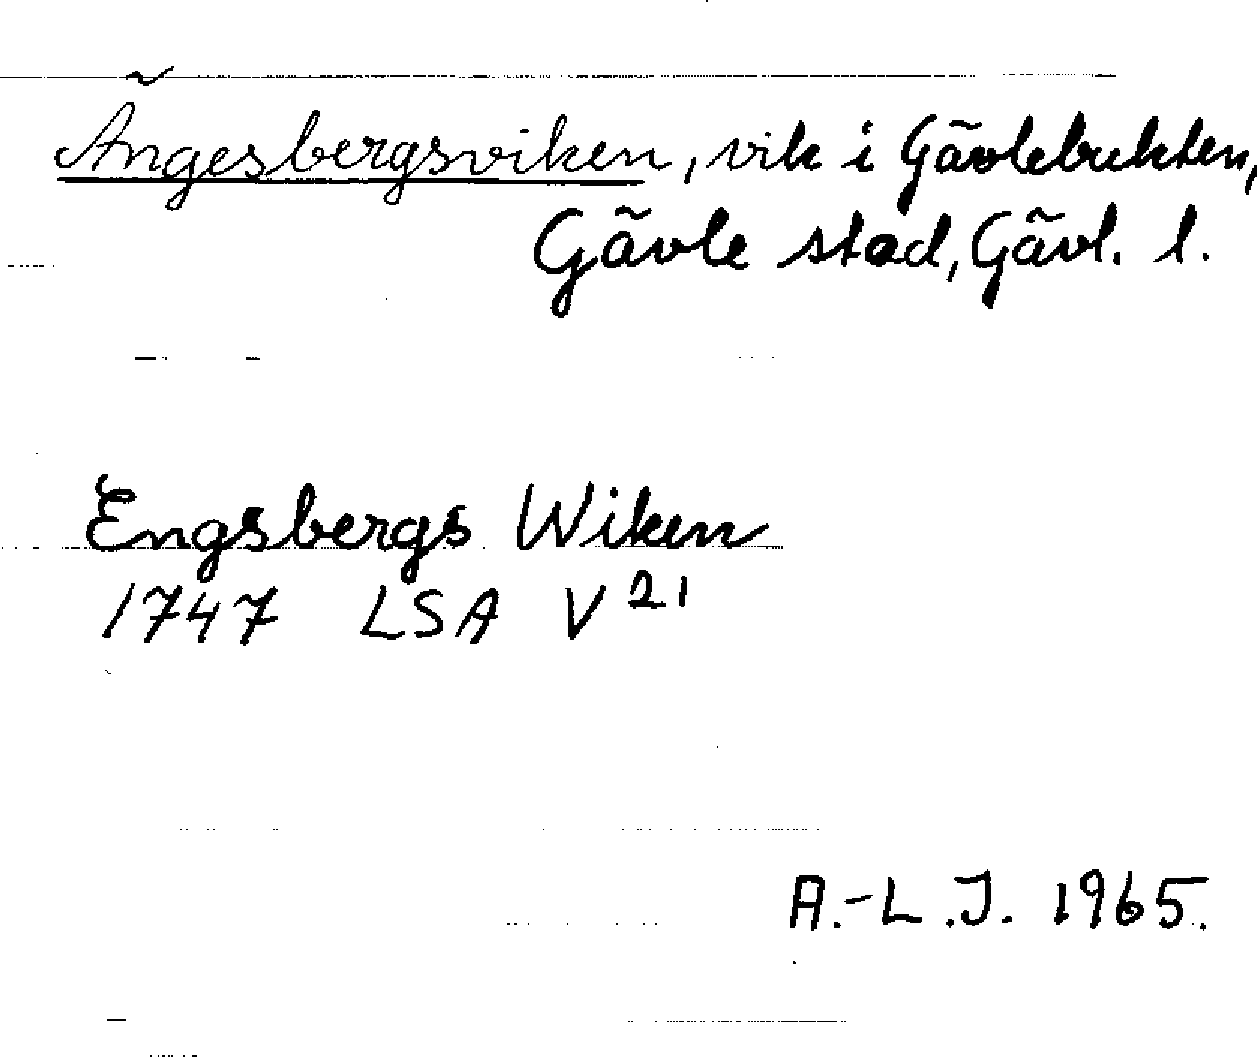 Ängesbergsviken, vik i Gävlebukten,
Gävle stad, Gävl. l.
Engsbergs Wiken
1747 LSA V 21
A.-L.J. 1965.